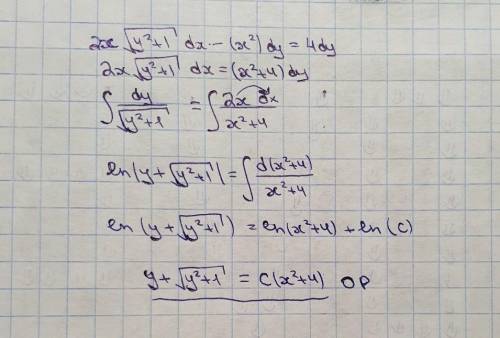 2x √(y²+1) dx − (x²) dy = 4dy
2x √(y²+1) dx = (x²+4) dy
∫ dy/√(y²+1) = ∫ 2x dx/(x²+4)
ln|y + √(y²+1)| = ∫ d(x²+4)/(x²+4)
ln(y + √(y²+1)) = ln(x²+4) + ln(C)
y + √(y²+1) = C(x²+4) ОР